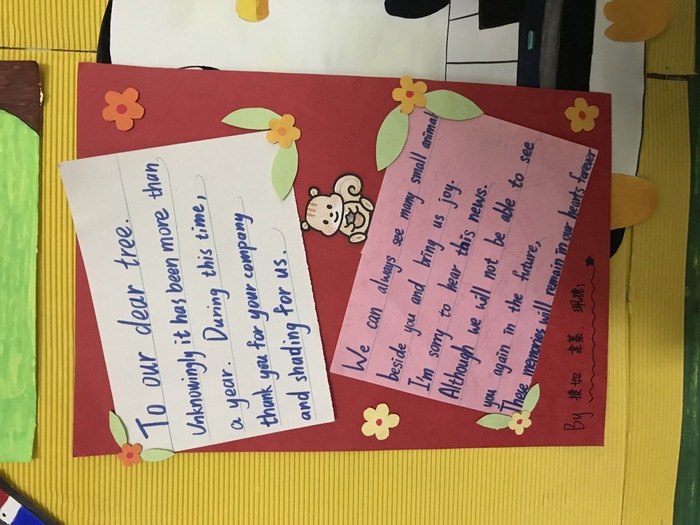 To our dear tree.
Unknowingly it has been more than
a year. During this time,
thank you for your company
and shading for us.
We can always see many small animal
beside you and bring us joy.
I'm sorry to hear this news.
Although we will not be able to see
you again in the future,
These memories will remain in our hearts forever
By